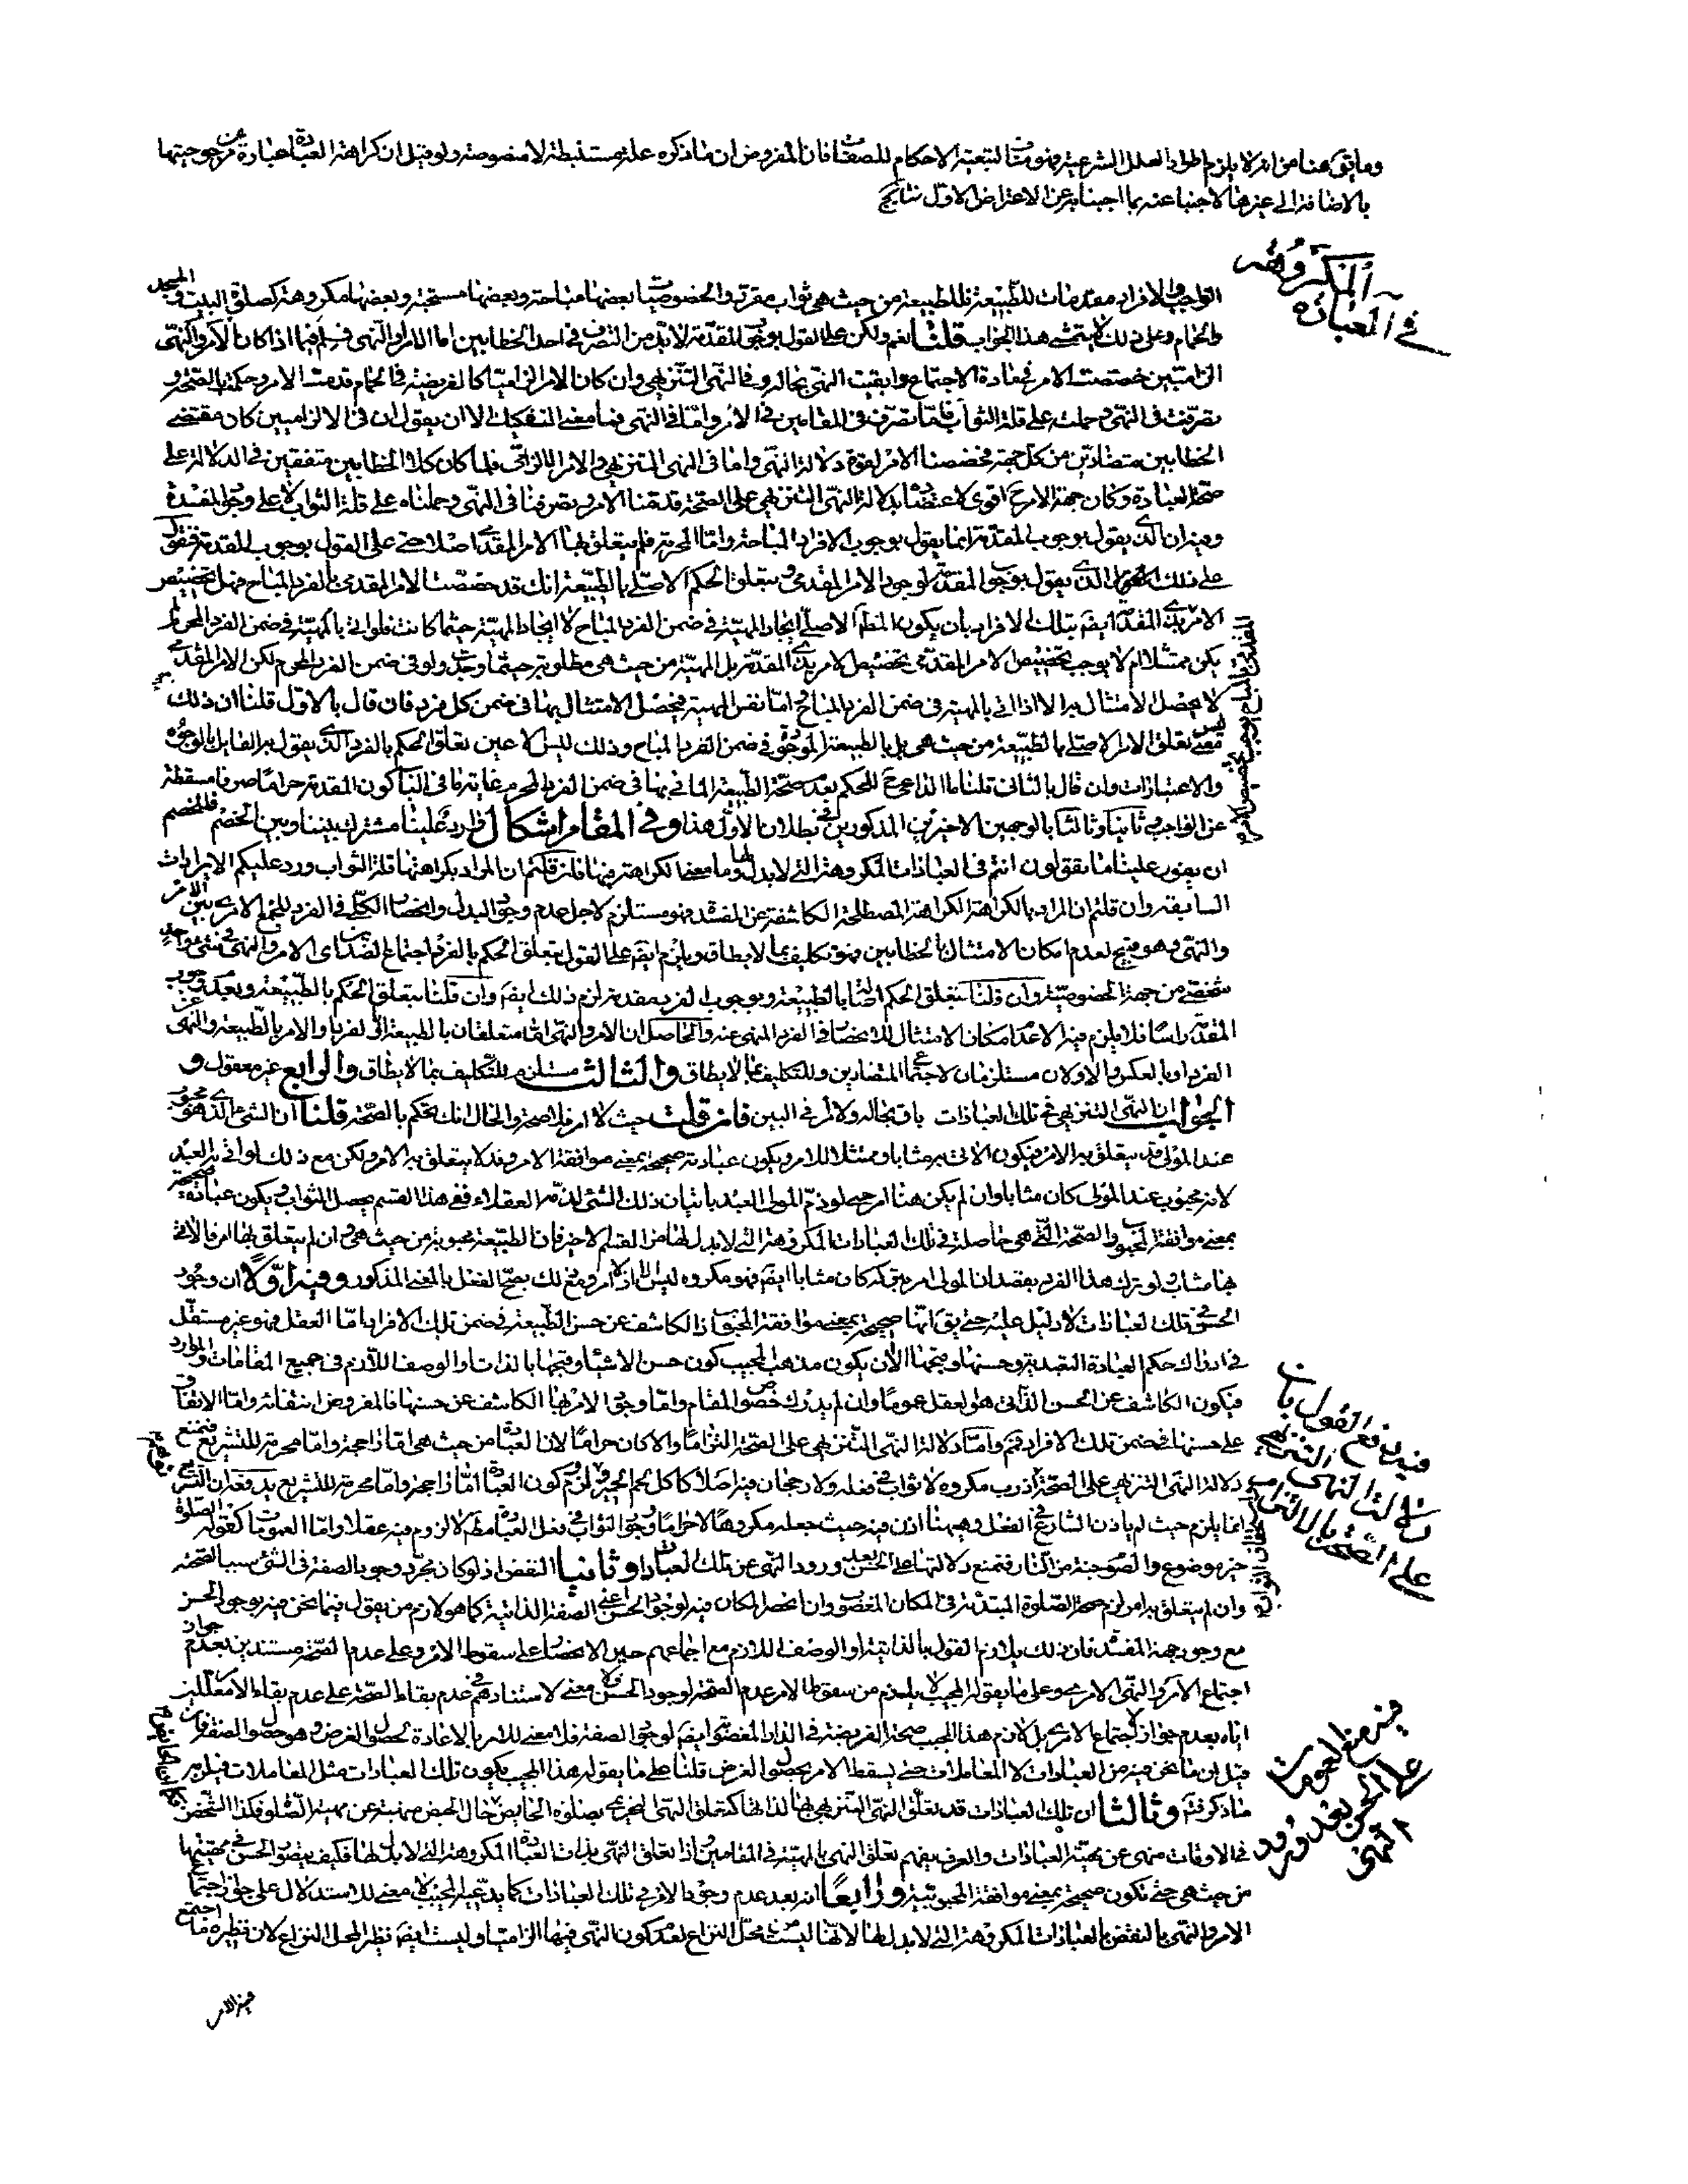 وما يق هنا من انه لا يلزم اطراد العلل الشرعية فهو مناف لتبعية الاحكام للصفات فان المفروض ان ما ذكره علة مستنبطة لا منصوصة ولو قيل ان كراهة العبادة عبارة عن مرجوحيتها
بالاضافة الى غيرها لاجبنا عنه بما اجبنا به عن الاعتراض الاول نتايج
فى المكروهة
العبادة
الواجب والافراد مقدمات للطبيعة فللطبيعة من حيث هى ثواب مقرر والخصوصيات بعضها مباحة وبعضها مستحبة وبعضها مكروهة كصلوة البيت والمسجد
والحمام وعلى ذلك لا يتمشى هذا الجواب قلنا نعم ولكن على القول بوجوب المقدمة لا بد من التصرف فى احد الخطابين اما الامر او النهى فنقول فيما اذا كان الامر والنهى
الزاميين خصصت الامر فى مادة الاجتماع وابقيت النهى بحاله وفى النهى التنزيهى وان كان الامر الزاميا كالفريضة فى الحمام قدمت الامر وحكمت بالصحة و
تصرفت فى النهى وحملت على قلة الثواب فاما تصرف فى المقامين فى الامر واما فى النهى فما معنى التفكيك الا ان يقول ان فى الالزاميين كان مقتضى
الخطابين متضادين من كل جهة فخصصنا الامر لقوة دلالة النهى واما فى النهى التنزيهى والامر الالزامى فلما كان كلا الخطابين متفقين فى الدلالة على
صحة العبادة وكان جهة الامر ح اقوى لاعتضاد بدلالة النهى التنزيهى على الصحة قدمنا الامر وتصرفنا فى النهى وحملناه على قلة الثواب لا على وجود المفسدة
وفيه ان الذى يقول بوجوب المقدمة انما يقول بوجوب الافراد المباحة واما المحرمة فلم يتعلق بها الامر المقدمى اصلا حتى على القول بوجوب المقدمة فنقول
على ذلك القول الذى يقول بوجوب المقدمة لوجود الامر المقدمى ويتعلق الحكم الاصلى بالطبيعة انك قد خصصت الامر المقدمى بالفرد المباح فهل تخصيص
الامر بذى المقدمة ايضم بتلك الافراد بان يكون المطلوب الاصلى ايجاد المهية فى ضمن الفرد المباح لا ايجاد المهية حيثما كانت فلو اتى بالمهية فى ضمن الفرد المحرم لم
يكن ممتثلا ام لا يوجب تخصيص الامر المقدمى تخصيص الامر بذى المقدمة بل المهية من حيث هى مطلوبة حيثما وجدت ولو فى ضمن الفرد المحرم لكن الامر المقدمى
لا يحصل الامتثال به الا اذا اتى بالمهية فى ضمن الفرد المباح واما نفس المهية فيحصل الامتثال بها فى ضمن كل فرد فان قال بالاول قلنا ان ذلك
ليس معنى تعلق الامر الاصلى بالطبيعة من حيث هى بل بالطبيعة الموجودة فى ضمن الفرد المباح وذلك ليس الا عين تعلق الحكم بالفرد الذى يقول به القائل بالوجوه
والاعتبارات وان قال بالثانى قلنا ما الداعى ح للحكم بعدم صحة الطبيعة الماتى بها فى ضمن الفرد المحرم غاية ما فى الباب كون المقدمة حراما صرفا مسقطة
عن الواجب وثانيا وثالثا بالوجهين الاخيرين المذكورين فى بطلان الاول هذا وفى المقام اشكال وارد علينا مشترك بيننا وبين الخصم فللخصم
ان يعود علينا ما يقولون انتم فى العبادات المكروهة التى لا بدل لها وما معنى الكراهة فيها فان قلتم ان المراد بكراهتها قلة الثواب ورد عليكم الايرادات
السابقة وان قلتم ان المراد بالكراهة الكراهة المصطلحة الكاشفة عن المفسدة فهو مستلزم لاجل عدم وجود البدل وانحصار الكلى فى الفرد للجمع الامرى بين الامر
والنهى وهو قبيح لعدم امكان الامتثال بالخطابين فهو تكليف بما لا يطاق ويلزم ايضم على القول بتعلق الحكم بالفرد اجتماع الضدين اى الامر والنهى فى شىء واحد
شخصى من جهة الخصوصية وان قلنا بتعلق الحكم اصالة بالطبيعة وبوجوب الفرد مقدمة لزم ذلك ايضم وان قلنا بتعلق الحكم بالطبيعة وبعدم وجوب
المقدمة راسا فلا يلزم فيه الا عدم امكان الامتثال للانحصار فى الفرد المنهى عنه والحاصل ان الامر والنهى اما متعلقان بالطبيعة او الفرد او الامر بالطبيعة والنهى عن
الفرد او بالعكس والاولان مستلزمان لاجتماع المتضادين وللتكليف بما لا يطاق والثالث مستلزم للتكليف بما لا يطاق والرابع غير معقول و
الجواب ان النهى التنزيهى فى تلك العبادات باق بحاله ولا امر فى البين فان قلت حيث لا امر فلا صحة والحال انك تحكم بالصحة قلنا ان الشىء الذى هو محبوب
عند المولى قد يتعلق به الامر فيكون الاتى به مثابا وممتثلا للامر ويكون عبادته صحيحة بمعنى موافقة الامر وقد لا يتعلق به الامر ولكن مع ذلك لو اتى به العبد
لانه محبوب عند المولى كان مثابا وان لم يكن هنا امر حتى لو ذم المولى العبد باتيان ذلك الشىء لذمه العقلاء ففى هذا القسم يحصل الثواب ويكون عبادته صحيحة
بمعنى موافقة المحبوب والصحة التى هى حاصلة فى تلك العبادات المكروهة التى لا بدل لها من القسم الاخير فان الطبيعة محبوبة من حيث هى وان لم يتعلق بها امر فالاتى
بها مثاب ولو ترك هذا الفرد بقصد ان المولى امر بتركه كان مثابا ايضم فهو مكروه ليس الا اذ لا امر ومع ذلك يصح الفعل بالمعنى المذكور وفيه اولا ان وجود
الحسن فى تلك العبادات لا دليل عليه حتى يق انها صحيحة بمعنى موافقة المحبوب اذ الكاشف عن حسن الطبيعة فى ضمن تلك الافراد اما العقل فهو غير مستقل
فى ادراك حكم العبادة التعبدية وحسنها وقبحها الا ان يكون مذهب المجيب كون حسن الاشياء وقبحها بالذات او الوصف اللازم فى جميع المقامات والموارد
فيكون الكاشف عن الحسن الذاتى هو العقل عموما وان لم يدرك خصوص المقام واما وجود الامر بها الكاشف عن حسنها فالمفروض انتفائه واما الاتفاق
على حسنها فى ضمن تلك الافراد فمم واما دلالة النهى التنزيهى على الصحة التزاما والا كان حراما لان العبادة من حيث هى اما راجحة واما محرمة للتشريع فنمنع
دلالة النهى التنزيهى على الصحة اذ رب مكروه لا ثواب فى فعله ولا رجحان فيه اصلا كاكل لحم الحمير ولزوم كون العبادة اما راجحة واما محرمة للتشريع يدفعه ان التشريع
انما يلزم حيث لم ياذن الشارع فى الفعل وهيهنا اذن فيه حيث جعله مكروها لا حراما ووجود الثواب فى فعل العبادة مطلقا لا لزوم فيه عقلا واما العمومات كقوله الصلوة
خير موضوع والصوم جنة من النار فنمنع دلالتها على الحسن بعد ورود النهى عن تلك العبادات وثانيا النقض اذ لو كان مجرد وجود الصفة فى الشىء سببا لصحته
وان لم يتعلق به امر لزم صحة الصلوة المبتدئة فى المكان المغصوب وان انحصر المكان فيه لوجود الحسن اعنى الصفة الذاتية كما هو لازم من يقول فيما نحن فيه بوجود الحسن
مع وجود جهة المفسدة فان ذلك يلازم القول بالذاتية او الوصف اللازم مع اجماعهم حين الانحصار على سقوط الامر وعلى عدم الصحة مستندين بعدم جواز
اجتماع الامر والنهى الامرى وعلى ما يقوله المجيب لا يلزم من سقوط الامر عدم الصحة لوجود الحسن ولا معنى لاستنادهم فى عدم بقاء الصحة على عدم بقاء الامر معللين
اياه بعدم جواز الاجتماع الامرى بل لازم هذا المجيب صحة الفريضة فى الدار المغصوبة ايضم لوجود الصفة فلا معنى للامر بالاعادة لحصول الغرض وهو حصول الصفة فان
قيل ان ما نحن فيه من العبادات لا المعاملات حتى يسقط الامر بحصول الغرض قلنا على ما يقوله هذا المجيب يكون تلك العبادات مثل المعاملات فيلزم
ما ذكر فتم وثالثا ان تلك العبادات قد تعلق النهى التنزيهى بها لذاتها كتعلق النهى التحريمى بصلوة الحايض فحال الحيض منهية عن مهية الصلوة فكذا الشخص
فى الاوقات منهى عن مهية العبادات والعرف يفهم تعلق النهى بالمهية فى المقامين واذا تعلق النهى بذات العبادة المكروهة التى لا بدل لها فكيف يتصور الحسن فى مهيتها
من حيث هى حتى تكون صحيحة بمعنى موافقة المحبوبية ورابعا انه بعد عدم وجود الامر فى تلك العبادات كما يدعيه المجيب لا معنى للاستدلال على جواز اجتماع
الامر والنهى بالنقض بالعبادات المكروهة التى لا بدل لها لانها ليست من محل النزاع لعدم كون النهى فيها الزاميا وليست ايضم نظير المحل النزاع لان نظيره ما اجتمع
فيه الامر
فيه دفع القول بان
النهى التنزيهى
على الصحة بالالتزام
فيه منع العمومات
على الحسن بعد ورود
النهى